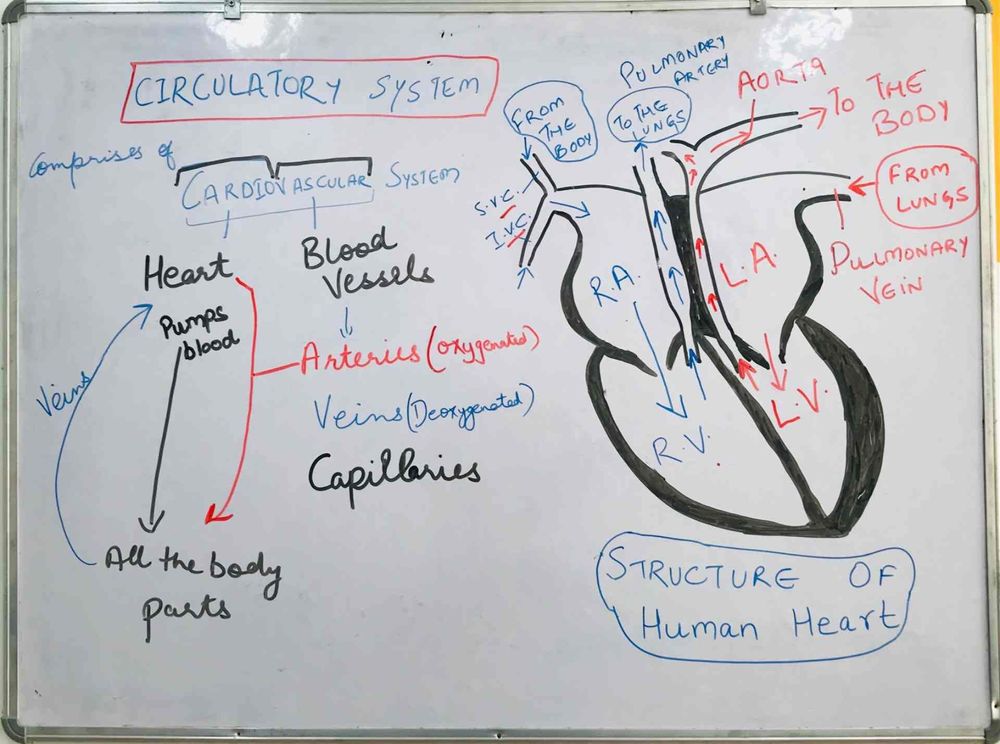 CIRCULATORY SYSTEM
Comprises of
CARDIOVASCULAR SYSTEM
Heart
Blood
Vessels
Pumps
blood
Arteries (oxygenated)
Veins (Deoxygenated)
Capillaries
Veins
All the body
parts
FROM
THE
BODY
PULMONARY
ARTERY
TO THE
LUNGS
AORTA
TO THE
BODY
FROM
LUNGS
PULMONARY
VEIN
S.V.C.
I.V.C.
R.A.
L.A.
R.V.
L.V.
STRUCTURE OF
Human Heart